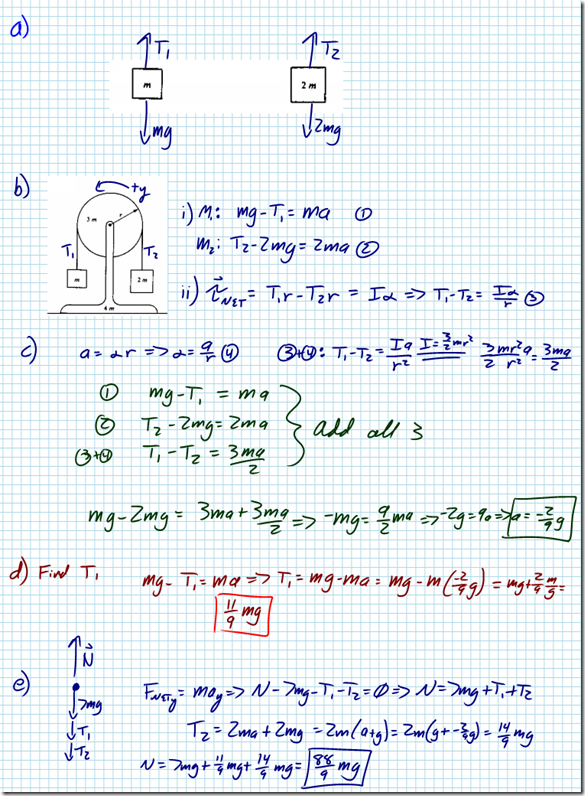 a)
T₁ T₂
m 2 m
mg 2mg
b)
+y
3 m r
T₁ T₂
m 2 m
4 m
i) m₁: mg-T₁ = ma ①
m₂: T₂-2mg = 2ma ②
ii) τ⃗NET = T₁r - T₂r = Iα => T₁-T₂ = Iα/r ③
c) a = αr => α = a/r ④ ③+④: T₁-T₂ = Ia/r² I=3/2mr² 3/2 mr²a/r² = 3ma/2
① mg-T₁ = ma
② T₂-2mg = 2ma
③+④ T₁-T₂ = 3ma/2
add all 3
mg-2mg = 3ma+3ma/2 => -mg = 9/2 ma => -2g = 9a => a = -2/9 g
d) Find T₁ mg-T₁ = ma => T₁ = mg-ma = mg-m(-2/9 g) = mg+2/9 mg =
11/9 mg
e)
N⃗
7mg
T₁
T₂
FNETy = may => N-7mg-T₁-T₂ = 0 => N = 7mg+T₁+T₂
T₂ = 2ma+2mg = 2m(a+g) = 2m(g+-2/9g) = 14/9 mg
N = 7mg+11/9 mg+14/9 mg = 88/9 mg